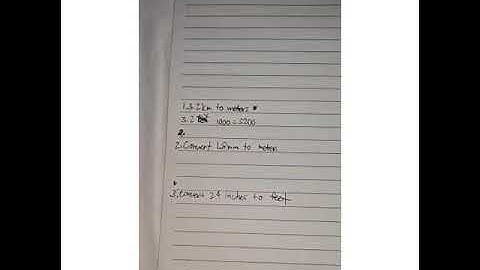 1. 3.2 km to meters
3.2 1000 = 3200
2.
2. Convert mm to meters
3. Convert 24 inches to feet